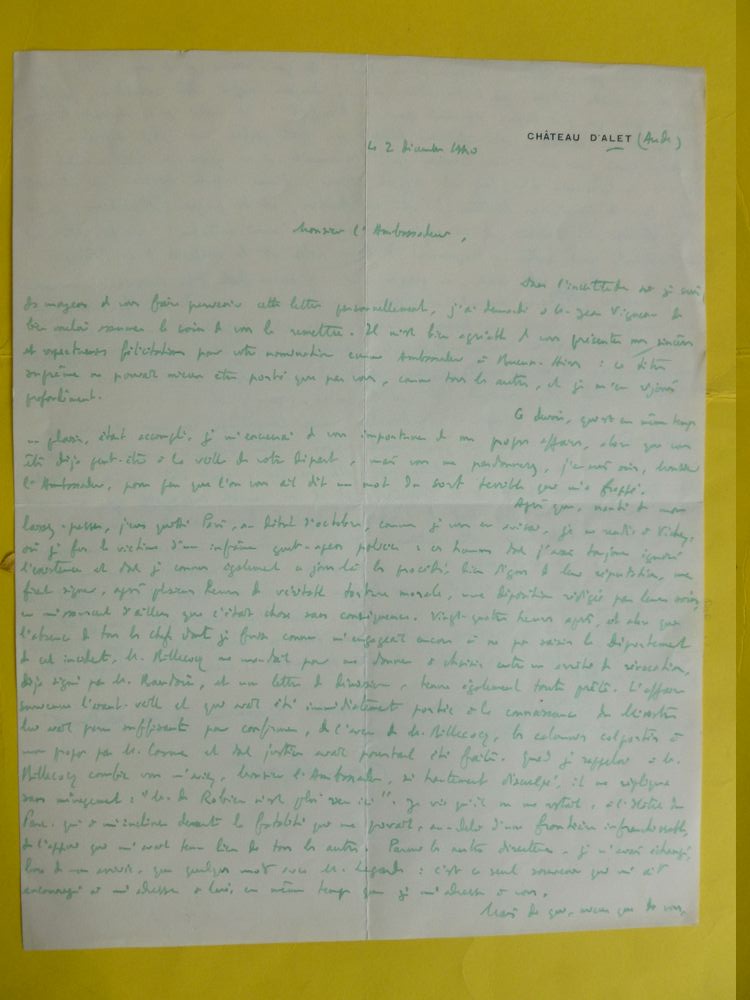 CHÂTEAU D'ALET (Aude)
le 2 décembre 1940
Monsieur l'Ambassadeur,
Dans l'incertitude où je suis
des moyens de vous faire parvenir cette lettre personnellement, j'ai demandé à M. Jean Vigneau de
bien vouloir assumer le soin de vous la remettre. Il m'est bien agréable de vous présenter mes sincères
et respectueuses félicitations pour votre nomination comme Ambassadeur à Buenos-Aires : ce titre
suprême ne pouvait mieux être porté que par vous, comme tous les autres, et je m'en réjouis
profondément.
Ce devoir, qui est en même temps
un plaisir, étant accompli, je m'excuserai de vous importuner de mes propres affaires, alors que vous
êtes déjà peut-être à la veille de votre départ, mais vous me pardonnerez, j'en suis sûr, Monsieur
l'Ambassadeur, pour peu que l'on vous ait dit un mot du sort terrible qui m'a frappé.
Après que, muni de mon
laissez-passer, j'eus quitté Paris, au début d'octobre, comme je vous en avisai, je me rendis à Vichy,
où je fus la victime d'un infâme guet-apens policier : ces hommes dont j'avais toujours ignoré
l'existence et dont je connus également ce jour-là les procédés bien dignes de leur réputation, me
firent signer, après plusieurs heures de véritable torture morale, une déposition rédigée par leurs soins,
en m'assurant d'ailleurs que c'était chose sans conséquence. Vingt-quatre heures après, et alors que
l'absence de tous les chefs dont je fusse connu m'engageait encore à ne pas saisir le Département
de cet incident, M. Billecocq me mandait pour me donner à choisir entre un arrêté de révocation,
déjà signé par M. Baudouin, et une lettre de démission, tenue également toute prête. L'affaire
survenue l'avant-veille et qui avait été immédiatement portée à la connaissance du Ministre
leur avait paru suffisante pour confirmer, de l'aveu de M. Billecocq, les calomnies colportées à
mon propos par M. et dont justice avait pourtant été faite. Quand je rappelai à M.
Billecocq combien vous m'aviez, Monsieur l'Ambassadeur, si hautement disculpé, il me répliqua
sans ménagement : "M. de Robien n'est plus rien ici". Je vis qu'il ne me restait, à l'Hôtel du
Parc, qu'à m'incliner devant la fatalité qui me privait, au-delà d'une frontière infranchissable,
de l'appui qui m'avait tenu lieu de tous les autres. Parmi les autres directeurs, je n'avais échangé,
lors de mon arrivée, que quelques mots avec M. Lagarde : c'est ce seul souvenir qui m'ait
encouragé à m'adresser à lui, en même temps que je m'adresse à vous.
Mais de qui, mieux que de vous,